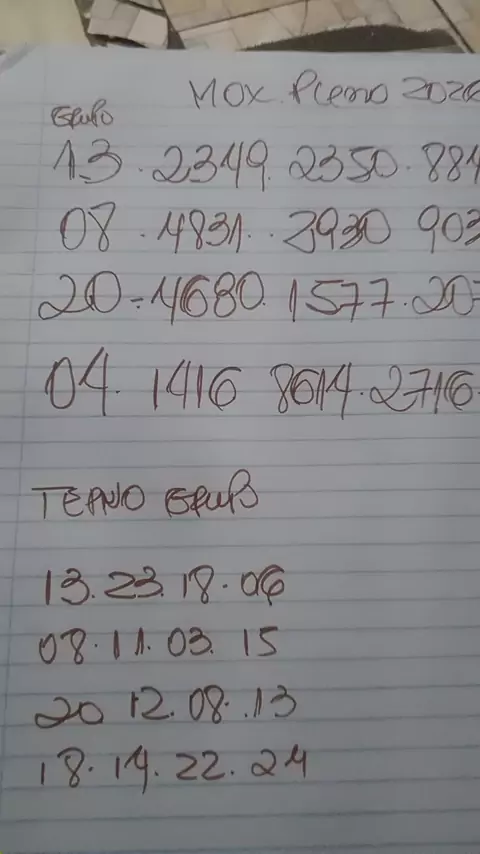 MOX. Pleno 2026
Grupo
13. 2349. 2350. 884
08. 4831. 3930 903
20-4680. 1577. 20
04. 1416 8614. 2716
TERNO GRUPO
13. 23. 18. 06
08. 11. 03. 15
20 12. 08. 13
18. 14. 22. 24